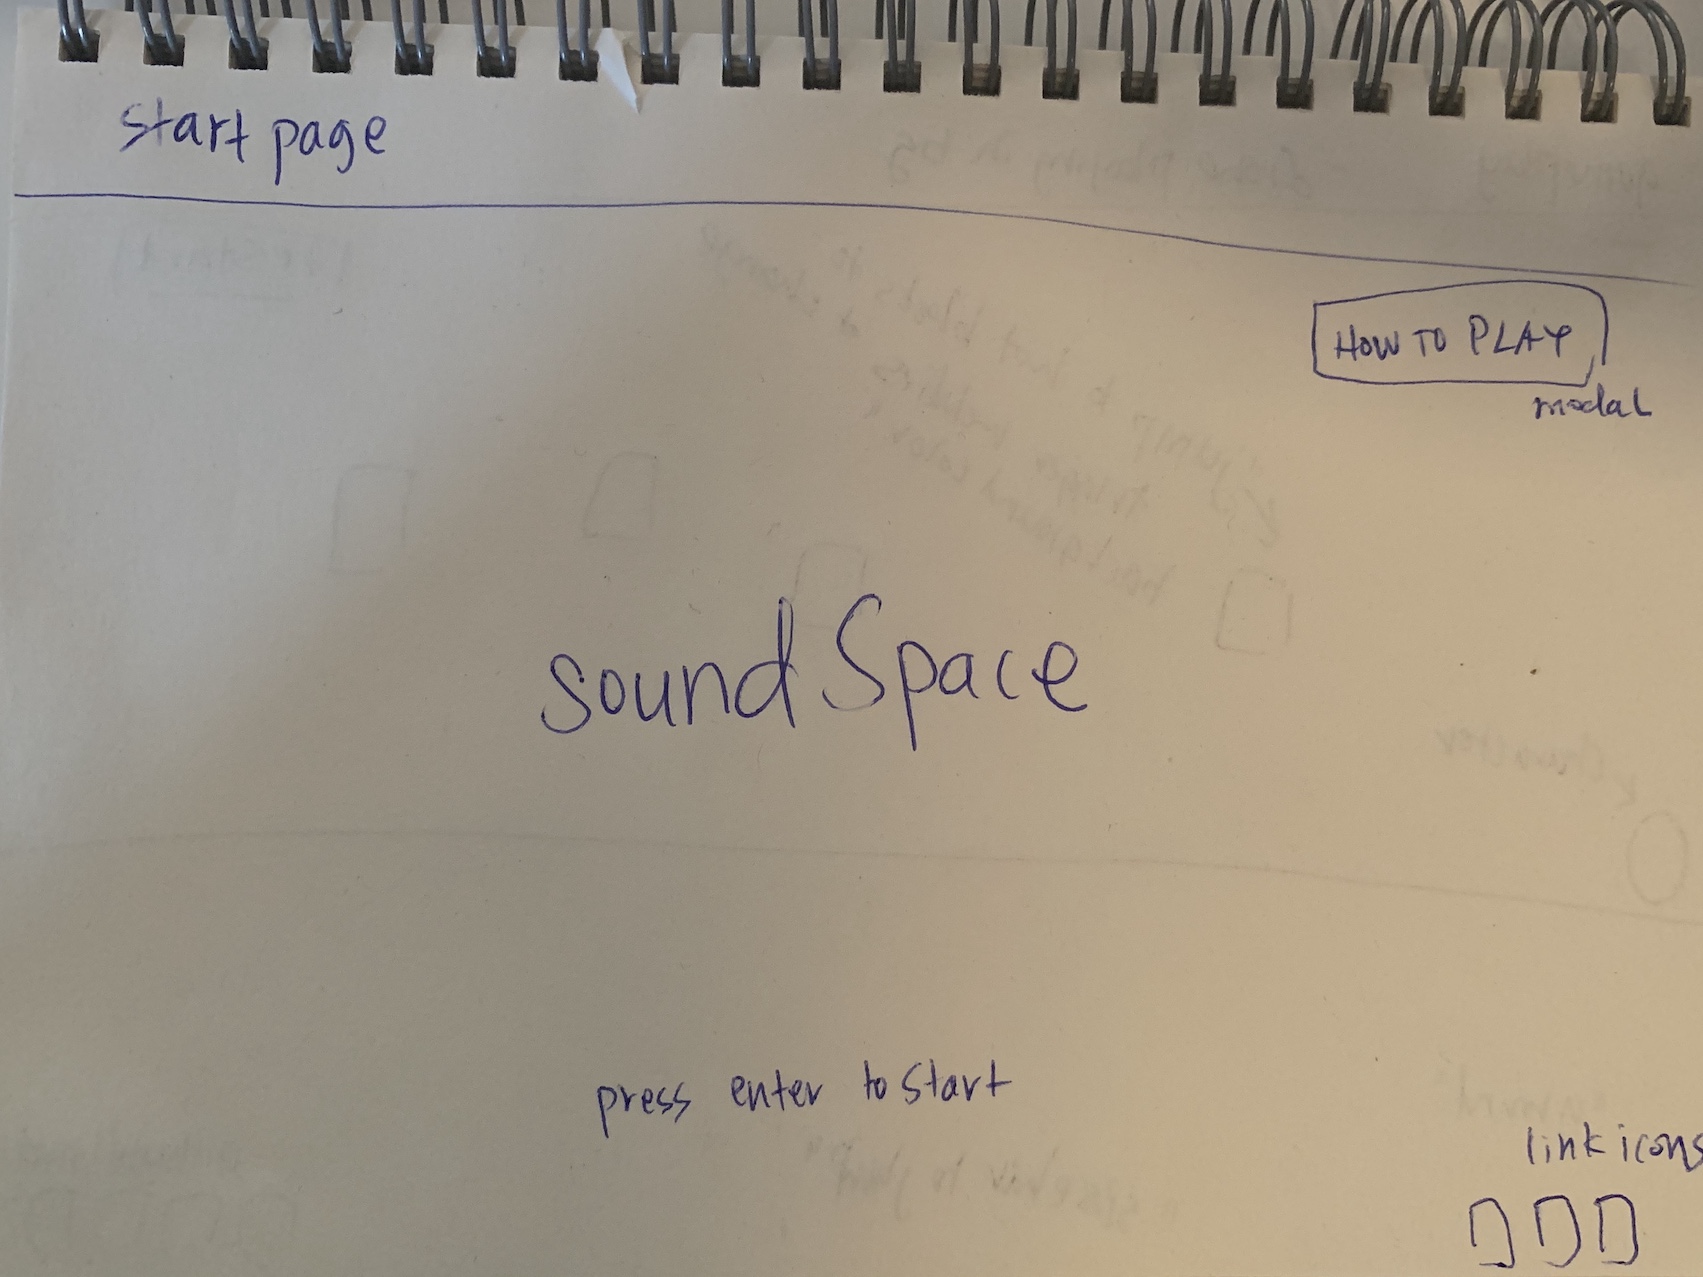 start page
HOW TO PLAY
modal
sound Space
press enter to start
link icons